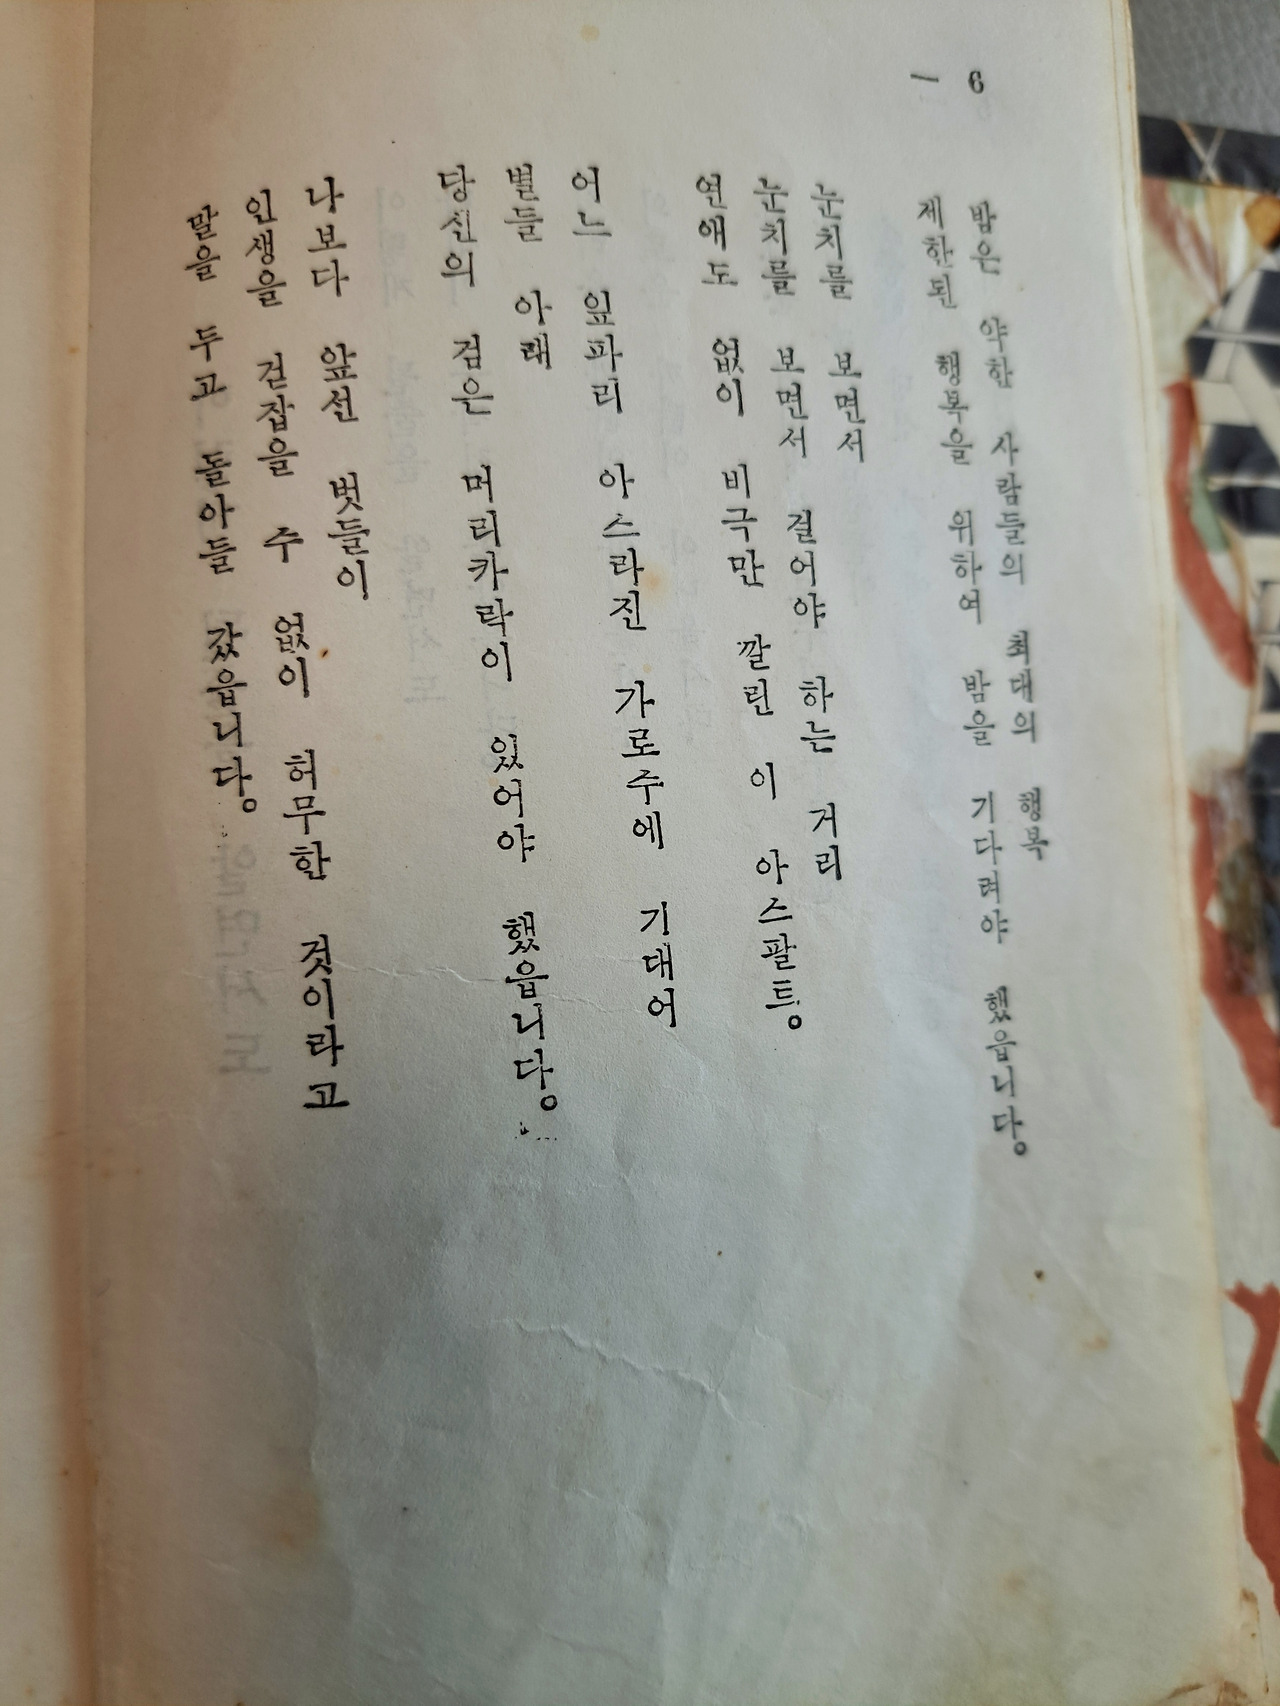 — 6
밤은 약한 사람들의 최대의 행복
제한된 행복을 위하여 밤을 기다려야 했읍니다。
눈치를 보면서
눈치를 보면서 걸어야 하는 거리
연애도 없이 비극만 깔린 이 아스팔트。
어느 잎파리 아스라진 가로수에 기대어
별들 아래
당신의 검은 머리카락이 있어야 했읍니다。
나보다 앞선 벗들이
인생을 걷잡을 수 없이 허무한 것이라고
말을 두고 돌아들 갔읍니다。